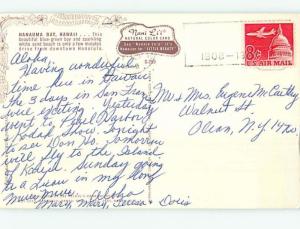 HANAUMA BAY, HAWAII ... This
beautiful blue green bay and sparkling
white sand beach is only a few minutes
drive from downtown Honolulu.
Nani Li'i
NATURAL COLOR CARD
LITTLE BEAUTY
8c
U.S. AIR MAIL
Aloha
Having wonderful
time here in Hawaii.
The 3 days in San Fran
were exciting. Yesterday
went to Pearl Harbor,
Kodak Show. Tonight
to see Don Ho. Tomorrow
will fly to the Island
of Kauai. Sunday going
to a Luau in my long
muu muu. Aloha
Mary, Mary, Teresa + Doris
Mr + Mrs. Eugene McCarthy
Walnut St
Olean, N.Y. 14760